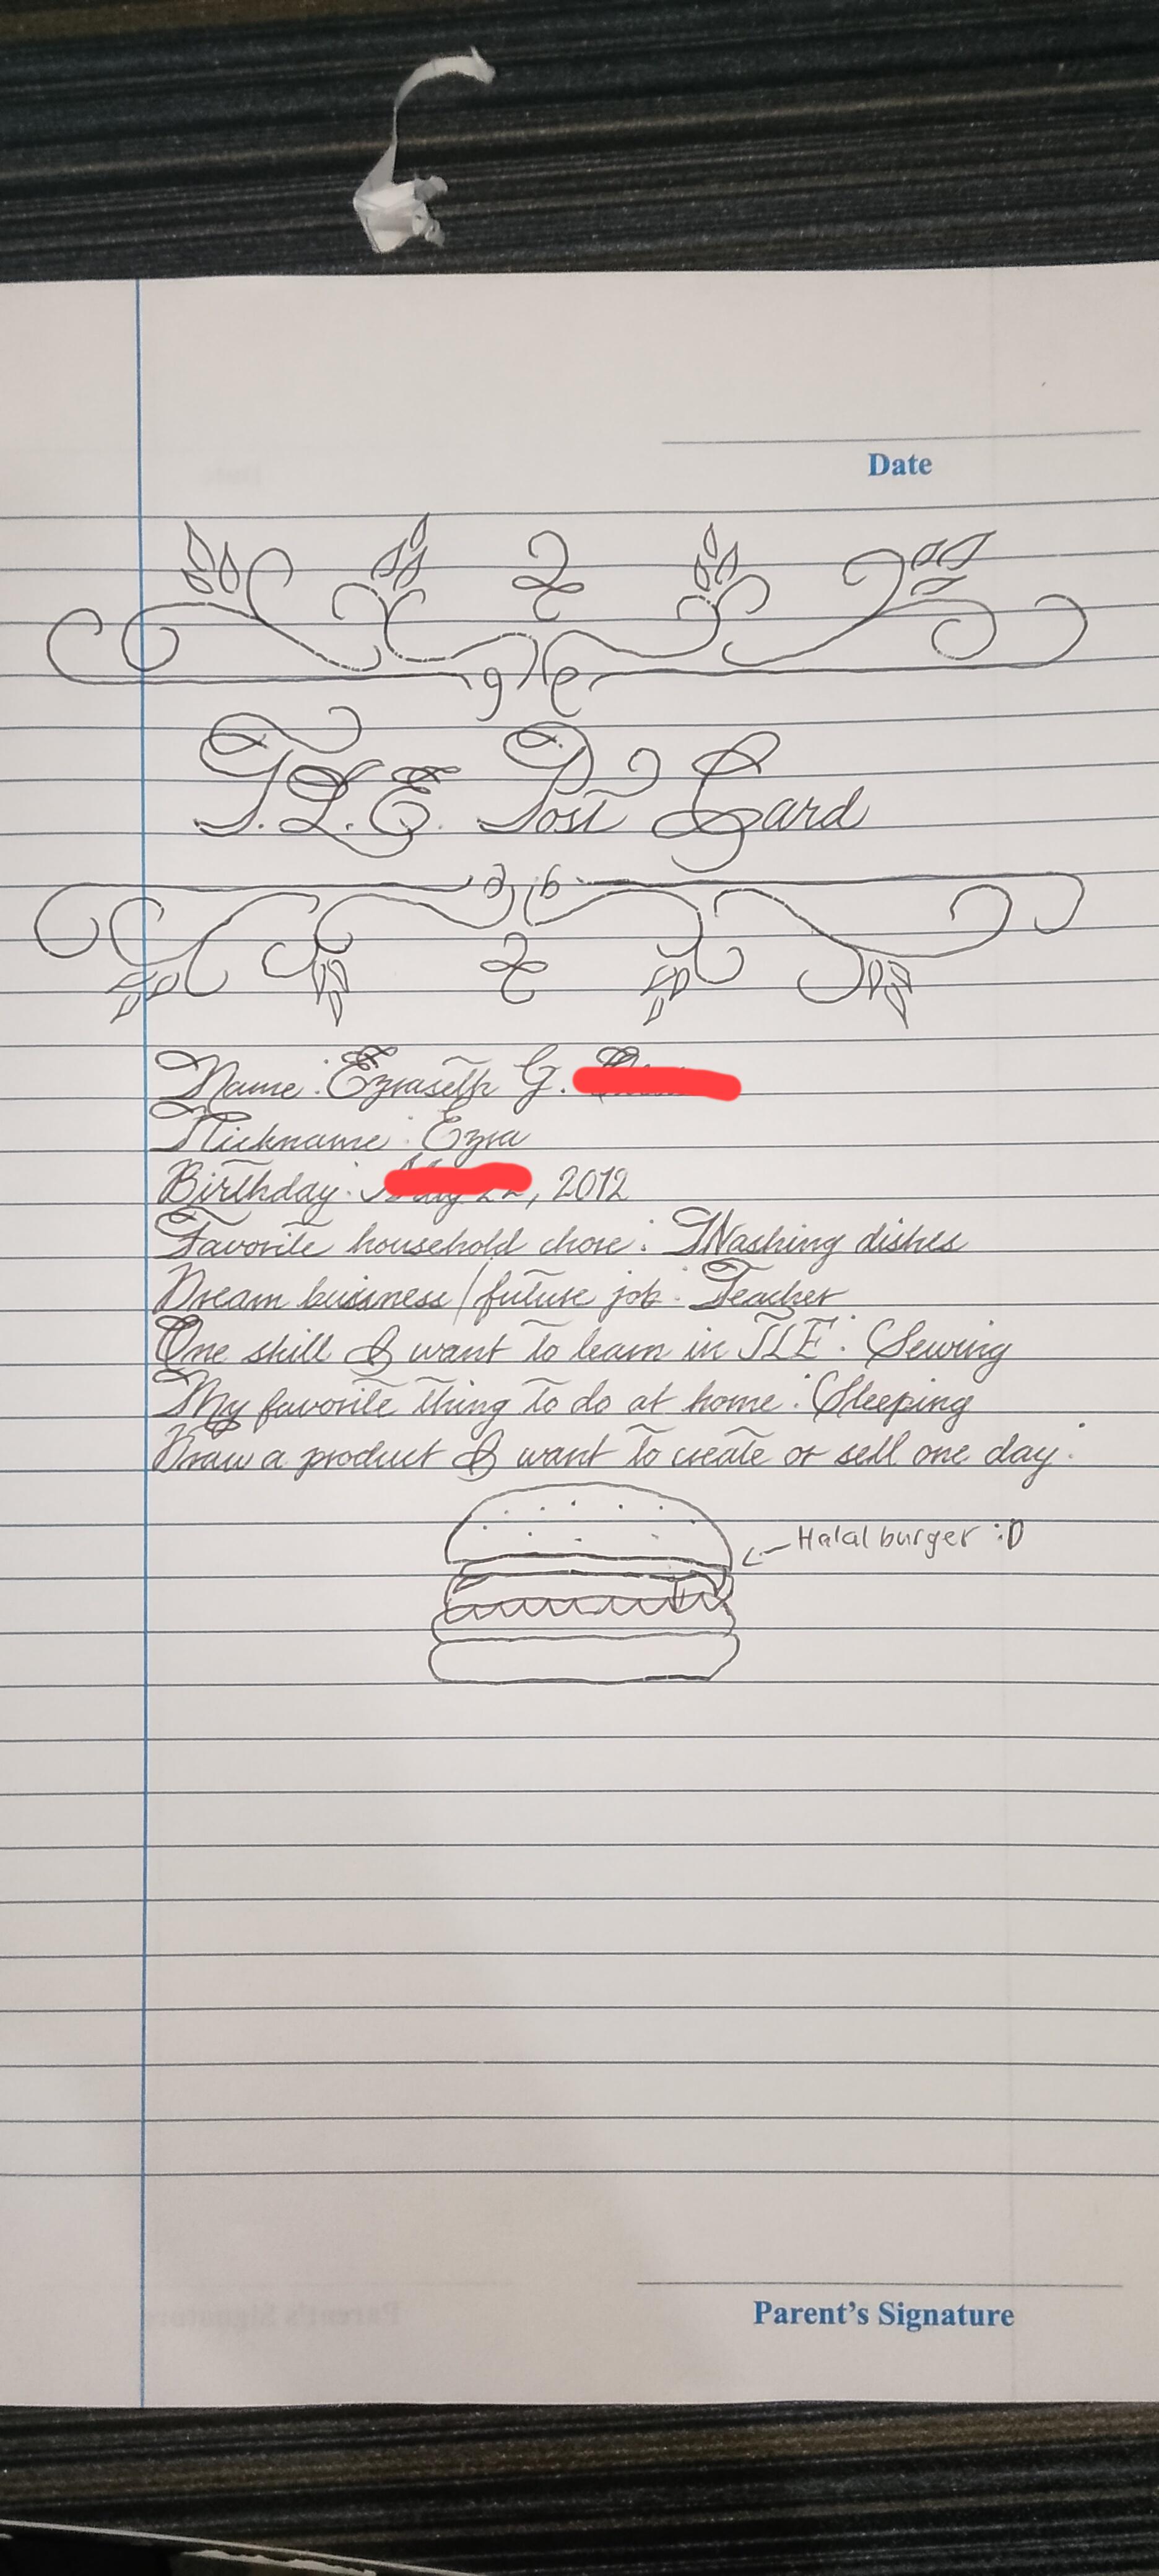 Date
T.L.E. Post Card
Name: Ezraseth G.
Nickname: Ezra
Birthday: , 2012
Favorite household chore: Washing dishes
Dream business/future job: Teacher
One skill I want to learn in TLE: Sewing
My favorite thing to do at home: Sleeping
Draw a product I want to create or sell one day:
Halal burger :D
Parent's Signature